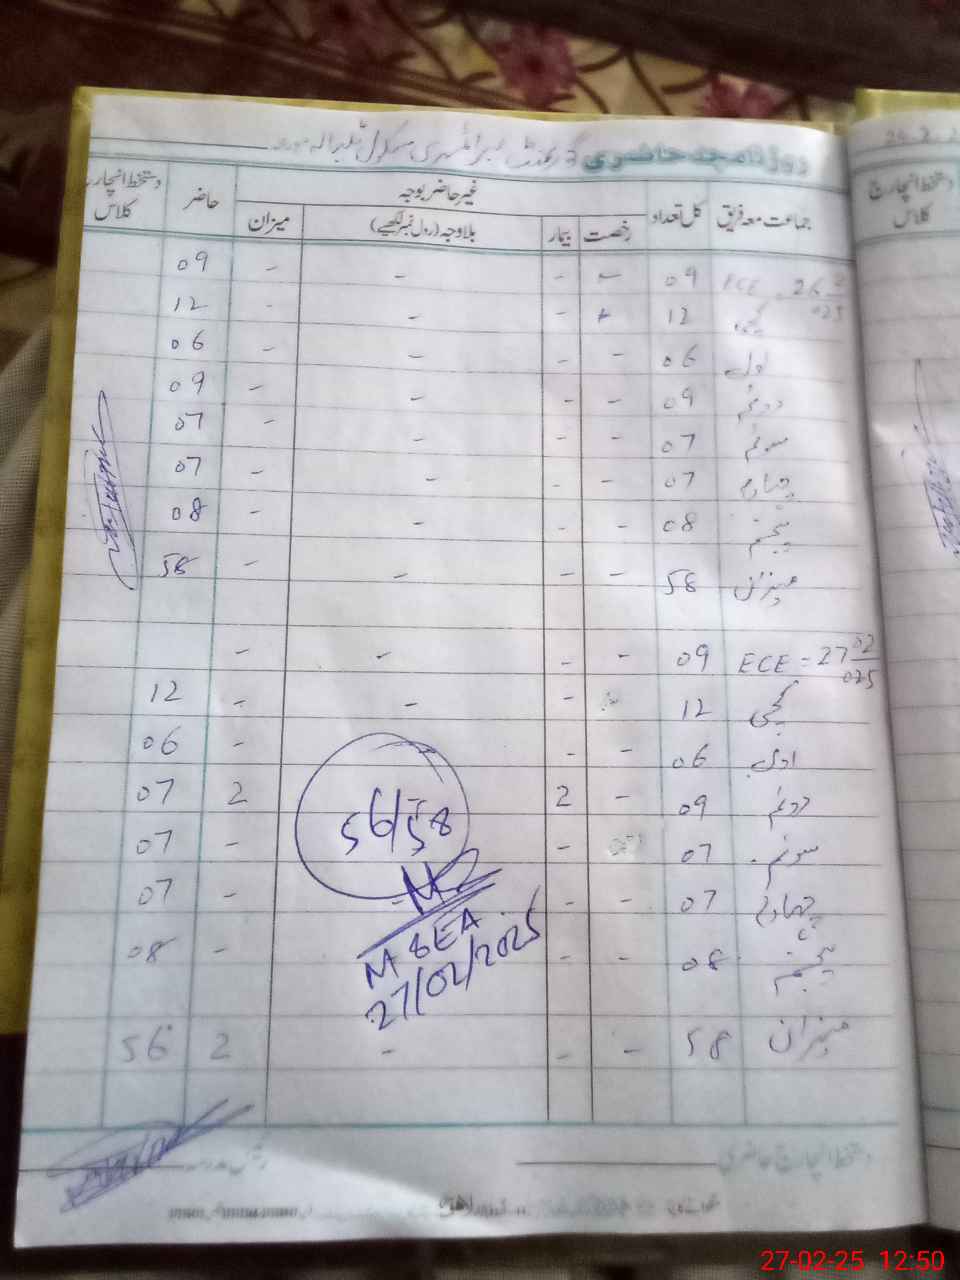 روزنامچہ حاضری گورنمنٹ پرائمری سکول
24-2-2
جماعت معہ فریق کل تعداد غیر حاضر بوجہ حاضر دستخط انچارج کلاس
رخصت بیمار بلاوجہ (رول نمبر لکھیے) میزان
دستخط انچارج کلاس
ECE 26 2/025 09 - - - - 09
کچی 12 - - - 12
اول 06 - - - - 06
دوئم 09 - - - - 09
سوئم 07 - - - - 07
چہارم 07 - - - - 07
پنجم 08 - - - - 08
میزان 58 - - - - 58
ECE = 27 02/025 09 - - - -
کچی 12 - - - 12
اول 06 - - - 06
دوئم 09 - 2 2 07
سوئم 07 - - 07
چہارم 07 - - - 07
پنجم 08 - - - 08
میزان 58 - - - 2 56
56/58
M&EA
27/02/2025
دستخط انچارج حاضری
27-02-25 12:50